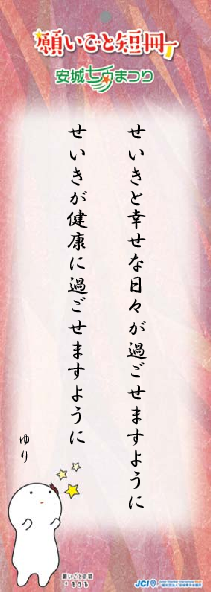 願いごと短冊
安城七夕まつり
せいきと幸せな日々が過ごせますように
せいきが健康に過ごせますように
ゆり
願いごと短冊
JCI